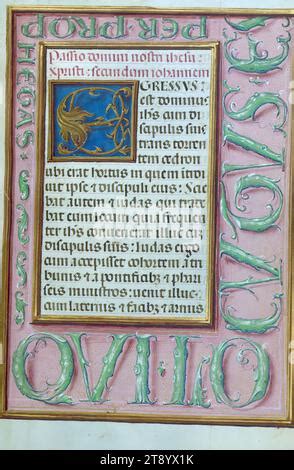 PER PROP
HETAS
QVI LO
CVTVS ES
Passio domini nostri ihesu
xpristi: secundum iohannem
EGRESSVS
est dominus
ihs cum di
scipulis suis
trans torren
tem cedron
ubi erat hortus in quem itroi
uit ipse et discipuli eius: Scie
bat autem et iudas qui trade
bat eum locum quia frequen
ter ihs conuenerat illuc cum
discipulis suis: Iudas ergo
cum accepisset cohortem a tri
bunis et a pontificibus et phari
seis ministros: uenit illuc
cum laternis et facibus et armis